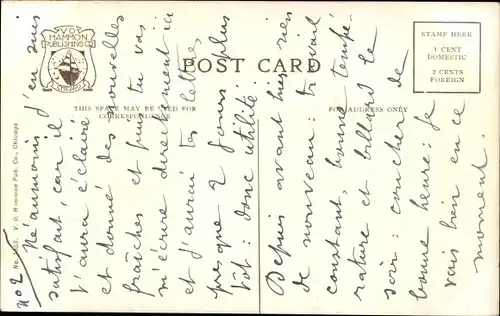 V.O. HAMMON
PUBLISHING CO.
CHICAGO
POST CARD
THIS SPACE MAY BE USED FOR
CORRESPONDENCE
FOR ADDRESS ONLY
STAMP HERE
1 CENT
DOMESTIC
2 CENTS
FOREIGN
V. O. Hammon Pub. Co., Chicago
No 2
Né anmoins j'en suis
satisfait, car il
t'aura éclairé
et donné des nouvelles
fraîches et puis tu vas
m'écrire directement ici
et j'aurai tes lettres
presque 2 jours plus
tôt: donc utilité.
Depuis avant hier rien
de nouveau: travail
constant, bonne tempé-
rature et billard le
soir: coucher de
bonne heure: Je
vais bien en ce
moment.